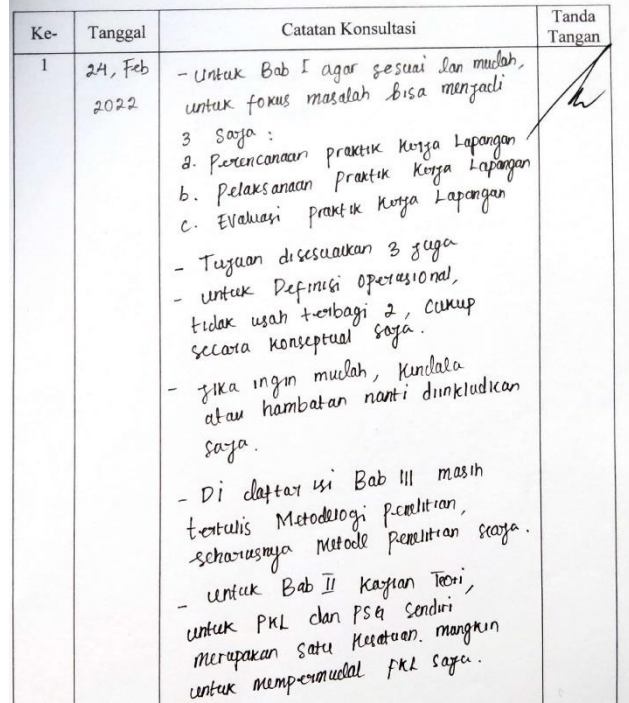 Ke-
Tanggal
Catatan Konsultasi
Tanda
Tangan
1
24, Feb
2022
- Untuk Bab I agar sesuai dan mudah,
untuk fokus masalah bisa menjadi
3 saja :
a. Perencanaan praktik Kerja Lapangan
b. Pelaksanaan praktik Kerja Lapangan
c. Evaluasi praktik Kerja Lapangan
- Tujuan disesuaikan 3 juga
- untuk Definisi Operasional,
tidak usah terbagi 2, cukup
secara konseptual saja.
- Jika ingin mudah, kendala
atau hambatan nanti diinkludkan
saja.
- Di daftar isi Bab III masih
tertulis Metodelogi penelitian,
seharusnya Metode Penelitian saja.
- untuk Bab II Kajian Teori,
untuk PKL dan PSG sendiri
merupakan satu Kesatuan. mungkin
untuk mempermudah PKL saja.